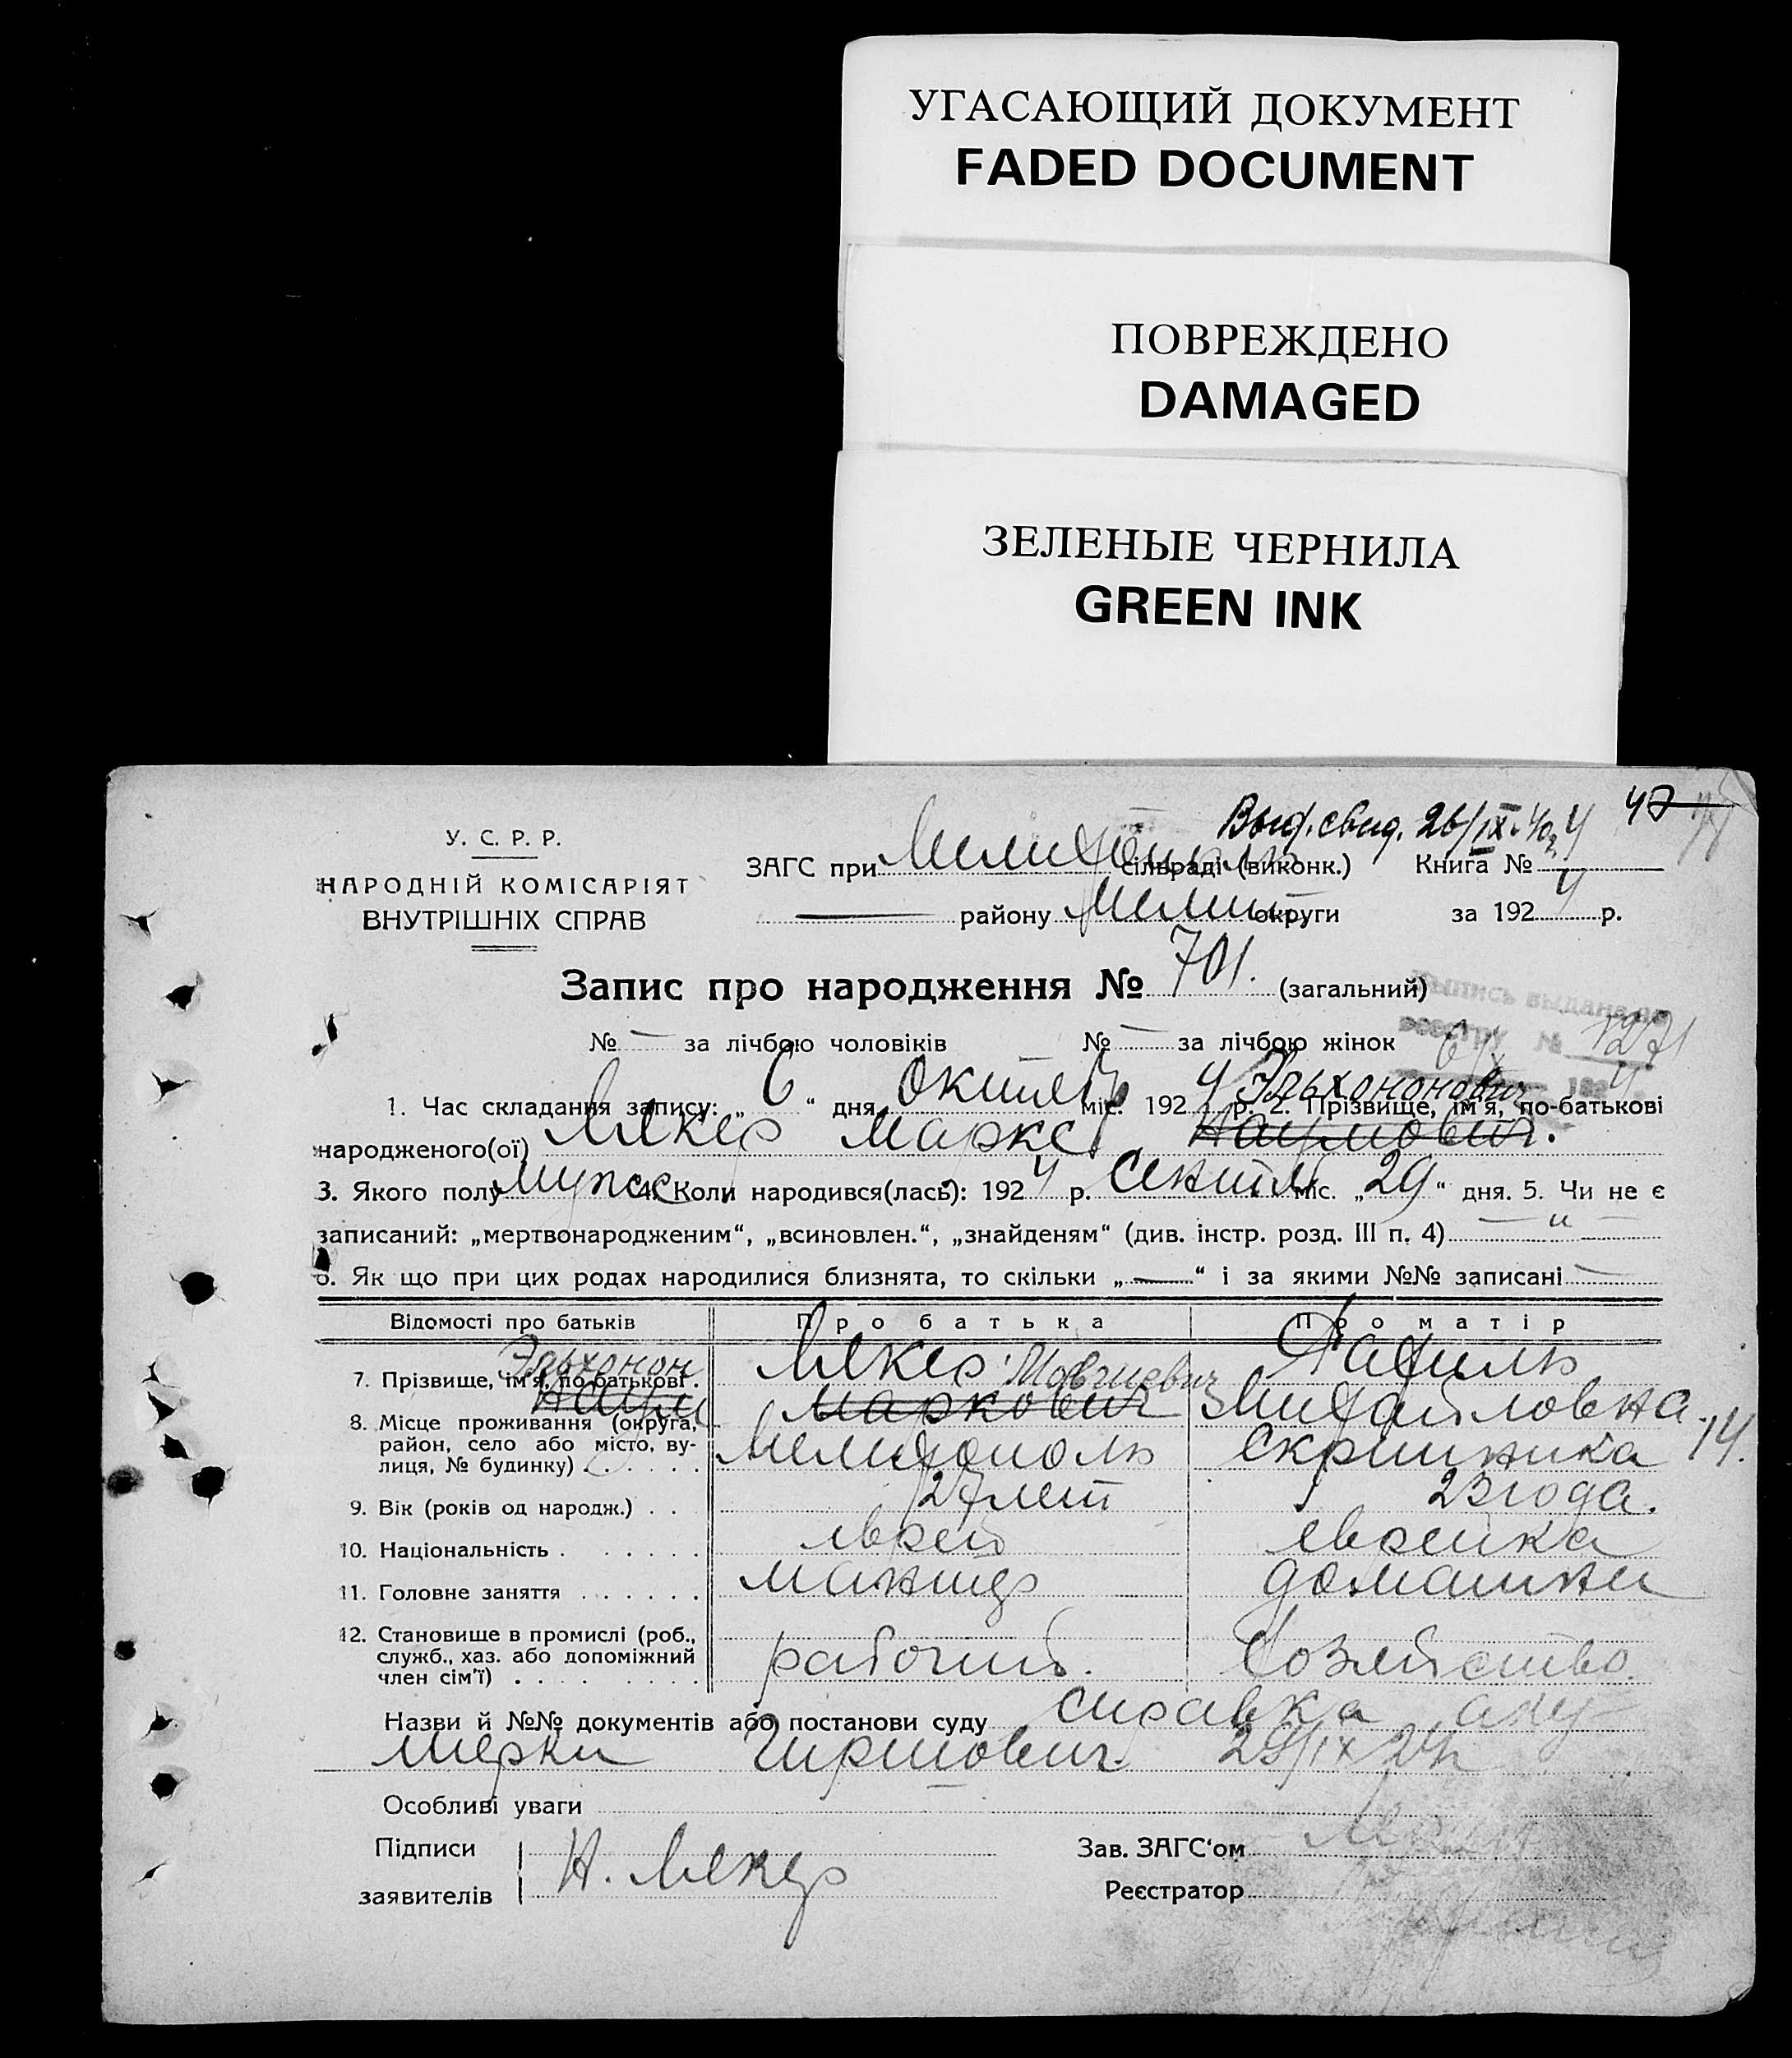 УГАСАЮЩИЙ ДОКУМЕНТ
FADED DOCUMENT
ПОВРЕЖДЕНО
DAMAGED
ЗЕЛЕНЫЕ ЧЕРНИЛА
GREEN INK
Выд. свид. 26/IX-
47
У. С. Р. Р.
НАРОДНІЙ КОМІСАРІЯТ
ВНУТРІШНІХ СПРАВ
ЗАГС при сільраді (виконк.) Книга № 4
— району Мелит. округи за 1924 р.
Запис про народження № 701. (загальний)
Выпись выдана по
реестру №
№ — за лічбою чоловіків № — за лічбою жінок
Эльхононович
1. Час складання запису: „ 6 “ дня Октябр міс. 1924 р. 2. Прізвище, ім'я, по-батькові
народженого(ої) Лякер Маркс Наумович.
3. Якого полу мужс 4. Коли народився(лась): 1924 р. Сентяб міс. „ 29 “ дня. 5. Чи не є
записаний: „мертвонародженим“, „всиновлен.“, „знайденям“ (див. інстр. розд. III п. 4) — „ —
6. Як що при цих родах народилися близнята, то скільки „ — “ і за якими №№ записані —
Відомості про батьків Про батька Про матір
Эльхонон
7. Прізвище, ім'я, по-батькові . Лякер Мовшевич Рахиль
Наум Маркович Михайловна
8. Місце проживання (округа, район, село або місто, вулиця, № будинку) . Мелитополь Скрипника 14.
9. Вік (років од народж.) . . 27 лет 23 года.
10. Національність . . . . . . еврей еврейка
11. Головне заняття . . . . . . домашнее
12. Становище в промислі (роб., служб., хаз. або допоміжний член сім'ї) . . . . . . рабочий. хозяйство.
Назви й №№ документів або постанови суду справка аку
шерки Гиршович 29/IX 24 г
Особливі уваги
Підписи
заявителів Н. Лякер
Зав. ЗАГС'ом
Реєстратор